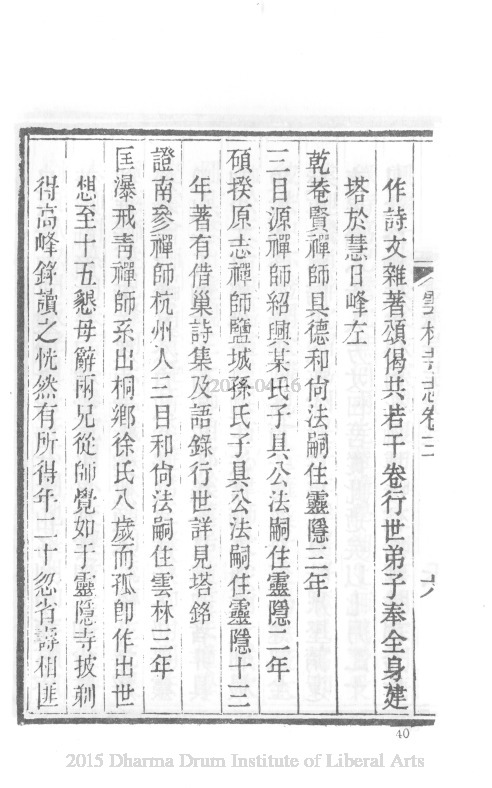 雲林寺志卷三
六
作詩文雜著頌偈共若干卷行世弟子奉全身建
塔於慧日峰左
乾菴賢禪師具德和尚法嗣住靈隱三年
三目源禪師紹興某氏子具公法嗣住靈隱二年
碩揆原志禪師鹽城孫氏子具公法嗣住靈隱十三
年著有借巢詩集及語錄行世詳見塔銘
證南參禪師杭州人三目和尚法嗣住雲林三年
匡瀑戒青禪師系出桐鄉徐氏八歲而孤卽作出世
想至十五懇母辭兩兄從師覺如于靈隱寺披剃
得高峰錄讀之恍然有所得年二十忽省壽相匪
40
2015 Dharma Drum Institute of Liberal Arts